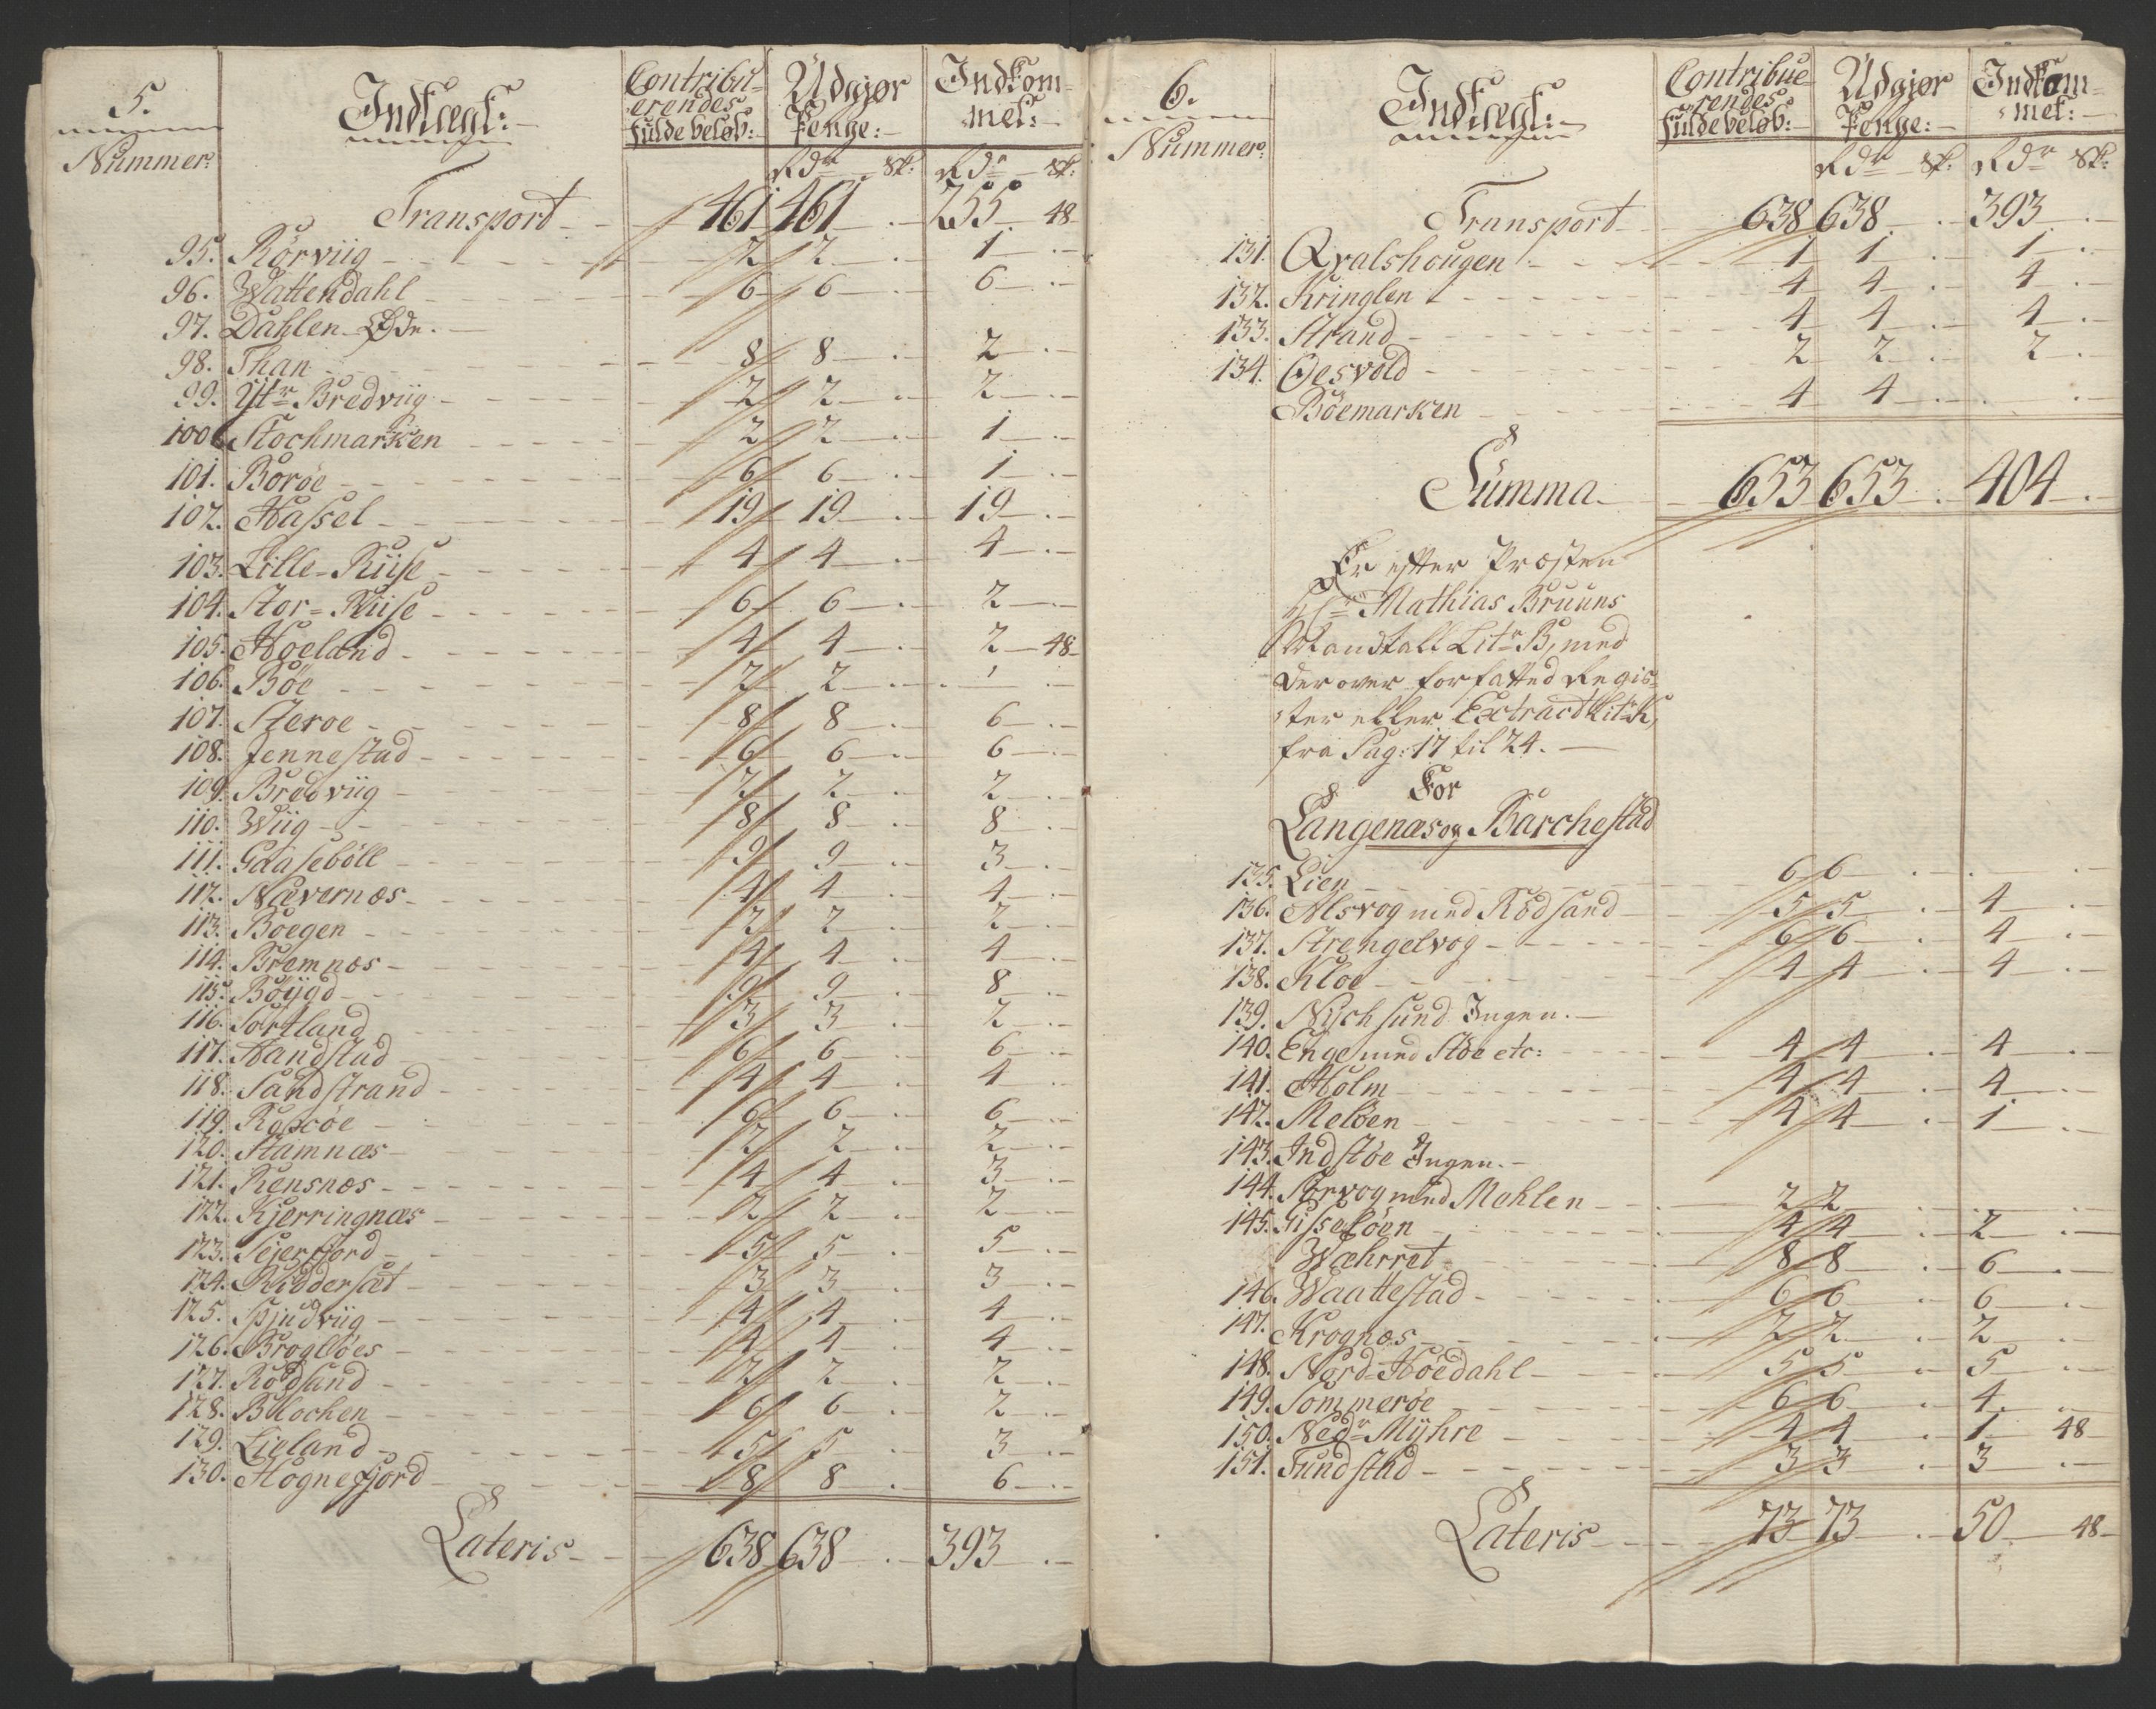 5.
Nummer:
Indtægt:
Contribu-
erendes
fulde beløb:
Udgjør
Penge:
Indkom-
met:
Rdr Sk: Rdr Sk:
Transport 461 461 . 255 48
95. Rörviig 2 2 . 1 .
96. Wattendahl 6 6 . 6 .
97. Dahlen Øde.
98. Than 8 8 . 2 .
99. Ytr Bredviig 2 2 . 2 .
100 Stochmarken 2 2 . 1 .
101. Boröe 6 6 . 1 .
102. Hassel 19 19 . 19 .
103. Lille-Riise 4 4 . 4 .
104. Stor-Riise 6 6 . 2 .
105. Høeland 4 4 . 2 48
106. Böe 2 2 . 1 .
107. Steroe 8 8 . 6 .
108. Jennestad 6 6 . 6 .
109. Bredviig 2 2 . 2 .
110. Wiig 8 8 . 8 .
111. Gaasebóll 9 9 . 3 .
112. Nævernæs 4 4 . 4 .
113. Boegen 2 2 . 2 .
114. Bremnæs 4 4 . 4 .
115. Böÿgd 9 9 . 8 .
116. Sortland 3 3 . 2 .
117. Handstad 6 6 . 6 .
118. Sandstrand 4 4 . 4 .
119. Roxöe 6 6 . 6 .
120. Stamnæs 2 2 . 2 .
121. Rensnæs 4 4 . 3 .
122. Kjerringnæs 2 2 . 2 .
123. Sejerfjord 5 5 . 5 .
124. Riddersæt 3 3 . 3 .
125. Spjudviig 4 4 . 4 .
126. Brogløes 4 4 . 4 .
127. Rödsand 2 2 . 2 .
128. Blochen 6 6 . 2 .
129. Lieland 5 5 . 3 .
130. Hognefjord 8 8 . 6 .
Lateris 638 638 . 393 .
6.
Nummer:
Indtægt:
Contribue-
rendes
fulde beløb:
Udgjør
Penge:
Indkom-
met:
Rdr Sk: Rdr Sk:
Transport 638 638 . 393 .
131. Qvalshougen 1 1 . 1 .
132. Kringlen 4 4 . 4 .
133. Strand 4 4 . 4 .
134. Oesvold 2 2 . 2 .
Böemarken 4 4 . . .
Summa 653 653 . 404 .
Er efter Præsten
Hr Mathias Bruuns
Mandtall Litr B, med
derover forfatted Regis-
ter eller Extract Litr K,
fra Pag: 17 til 24.
For
Langenæs og Barchestad
135. Lien 6 6 . . .
136. Alsvog med Rödsand 5 5 . 4 .
137. Strengelvog 6 6 . 4 .
138. Kloe 4 4 . 4 .
139. Nÿchsund Ingen.
140. Enge med Stöe etc: 4 4 . 4 .
141. Holm 4 4 . 4 .
142. Melöen 4 4 . 1 .
143. Indstöe Ingen.
144. Sörvog med Mehlen 2 2 . . .
145. Gisselöen 4 4 . 2 .
Wæhrret 8 8 . 6 .
146. Waattestad 6 6 . 6 .
147. Krognæs 2 2 . 2 .
148. Nord-Höedahl 5 5 . 5 .
149. Sommeröe 6 6 . 4 .
150. Nedr Mÿhre 4 4 . 1 48
151. Tundstad 3 3 . 3 .
Lateris 73 73 . 50 48